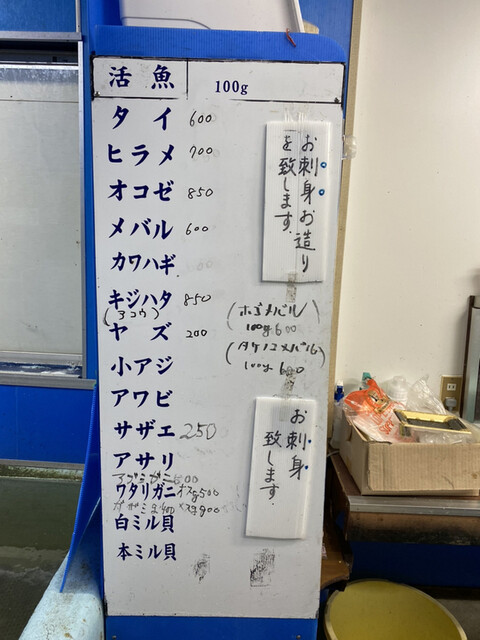 活魚 100g
タイ 600
ヒラメ 700
オコゼ 850
メバル 600
カワハギ
キジハタ 850
(アコウ)
ヤズ 200
小アジ
アワビ
サザエ 250
アサリ
ワタリガニ オス500
メス900
白ミル貝
本ミル貝
お刺身お造り
を致します.
(ホゴメバル)
100g 600
(タケノコメバル)
100g 600
お刺身
致します.